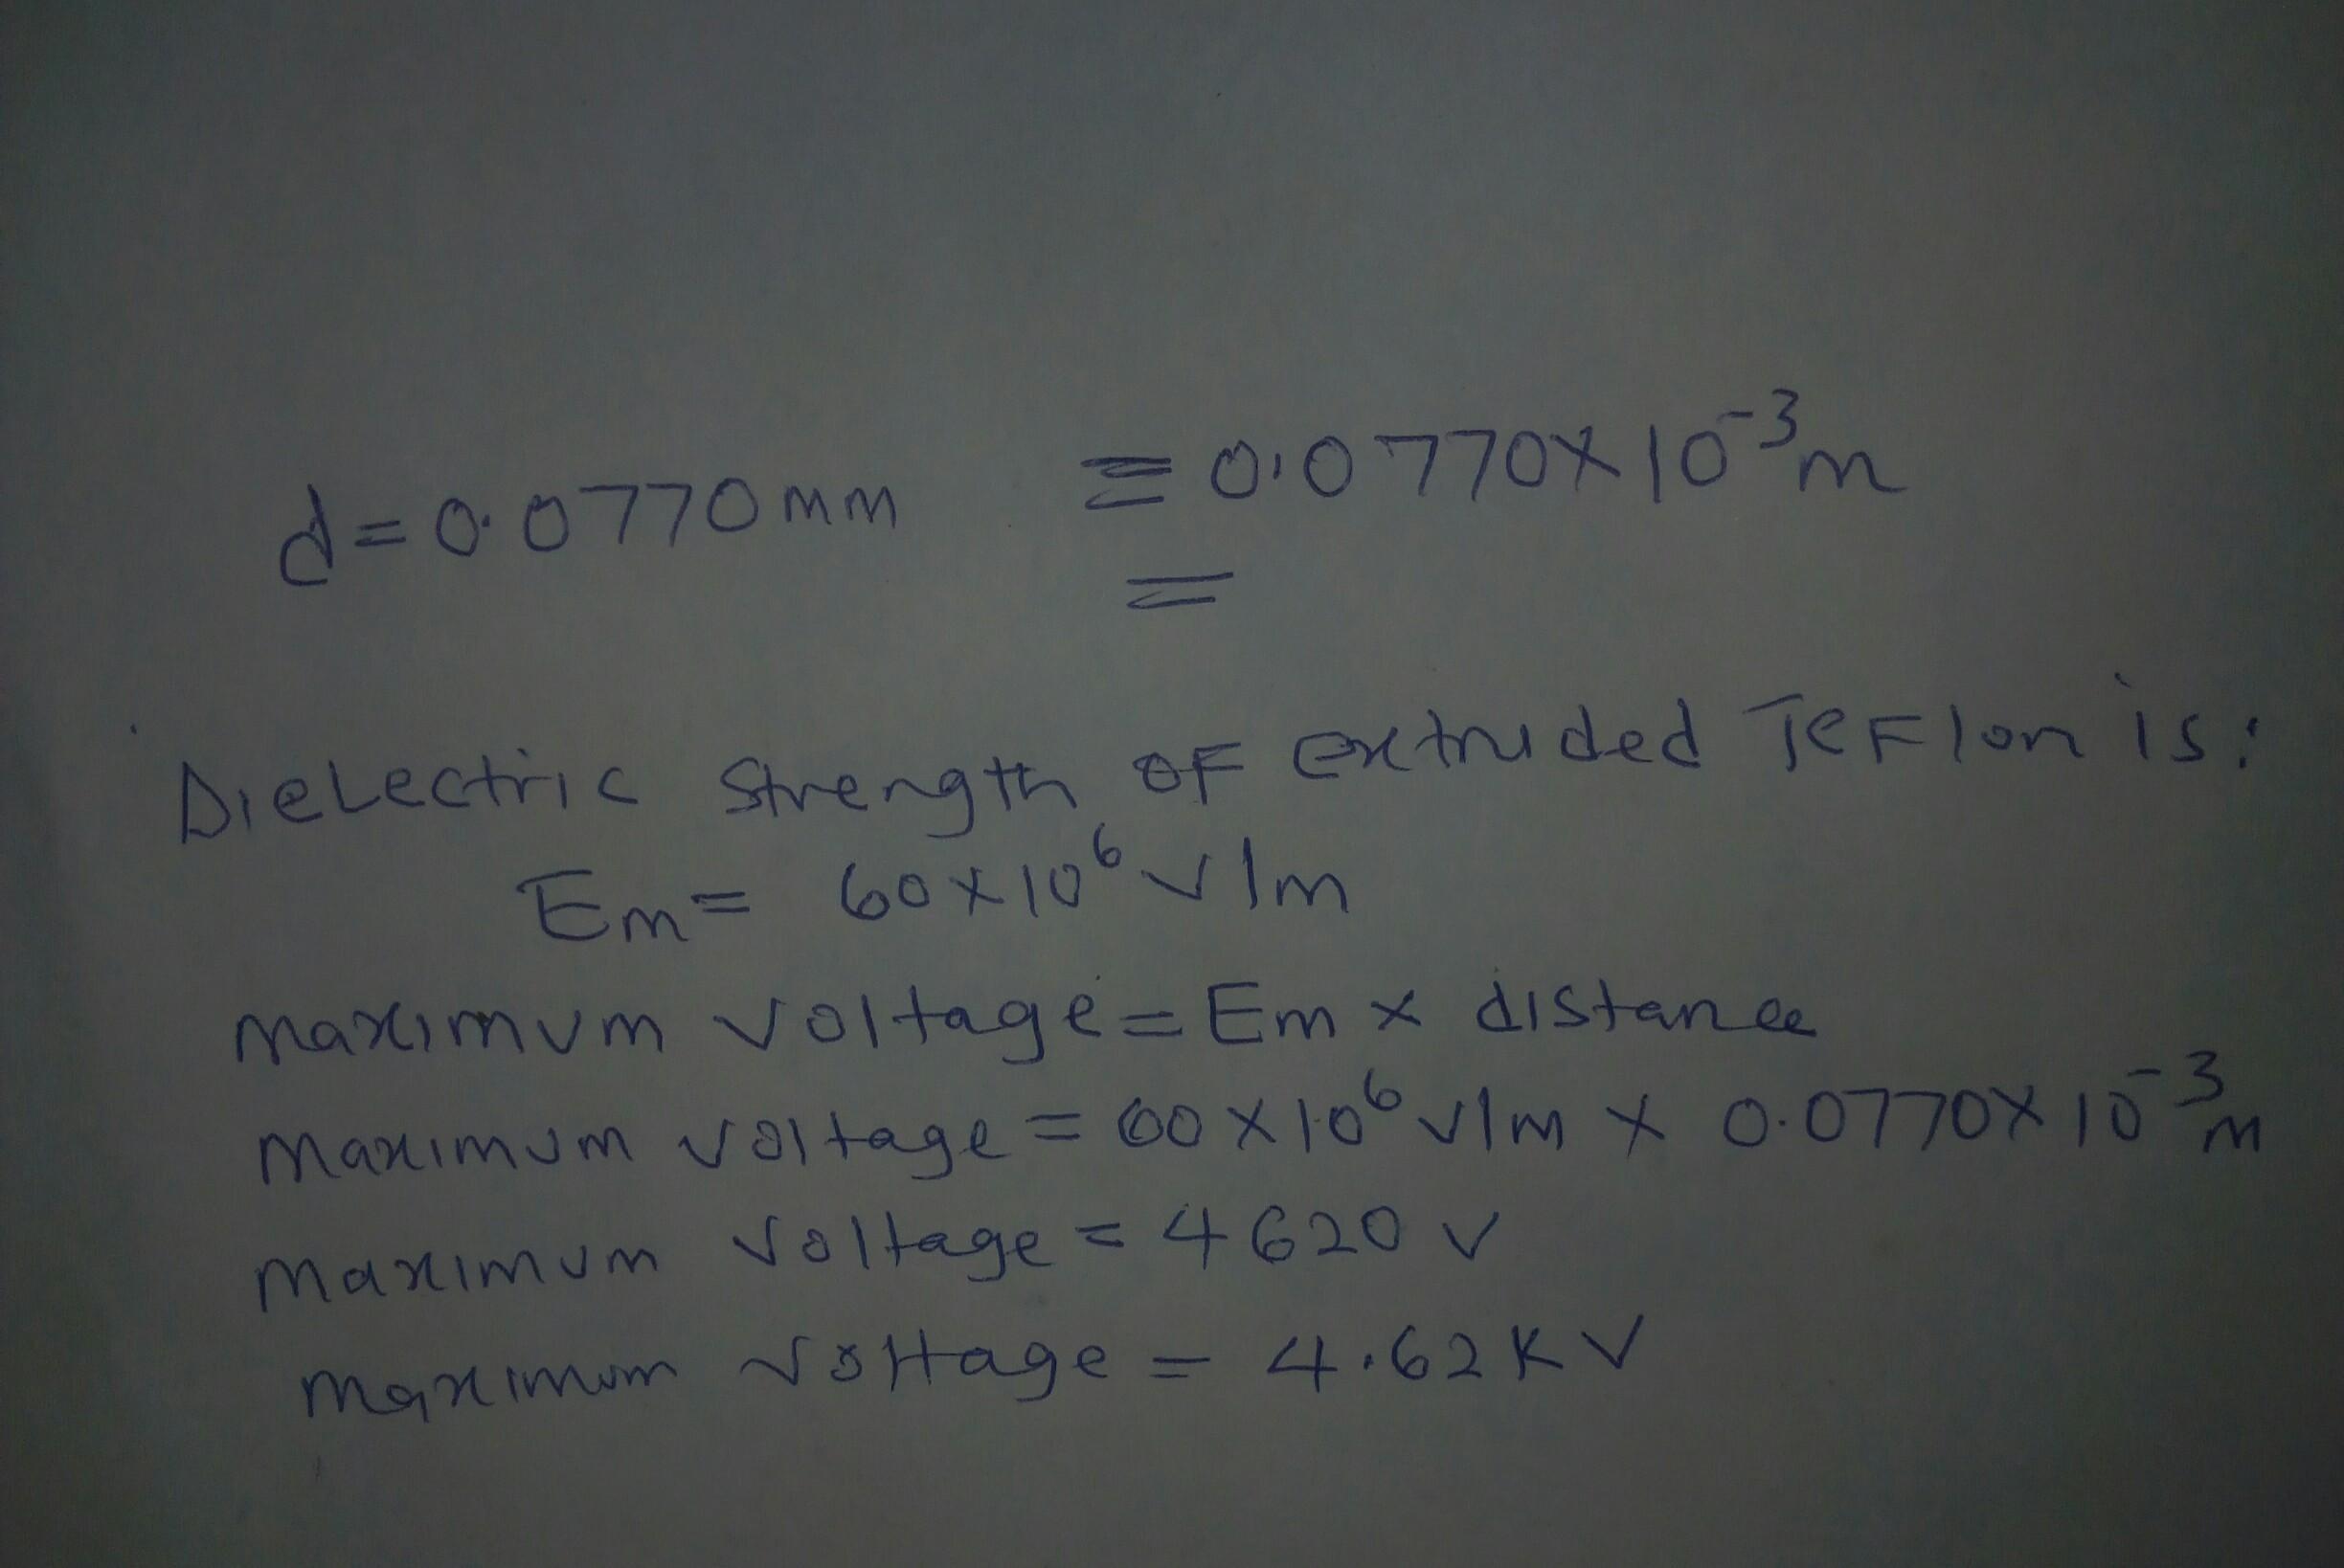 d=0.0770mm = 0.0770×10⁻³m
=
Dielectric strength of extruded Teflon is:
Em= 60×10⁶ v/m
maximum voltage=Em × distance
maximum voltage = 60×10⁶ v/m × 0.0770×10⁻³m
maximum voltage = 4620 v
maximum voltage = 4.62KV